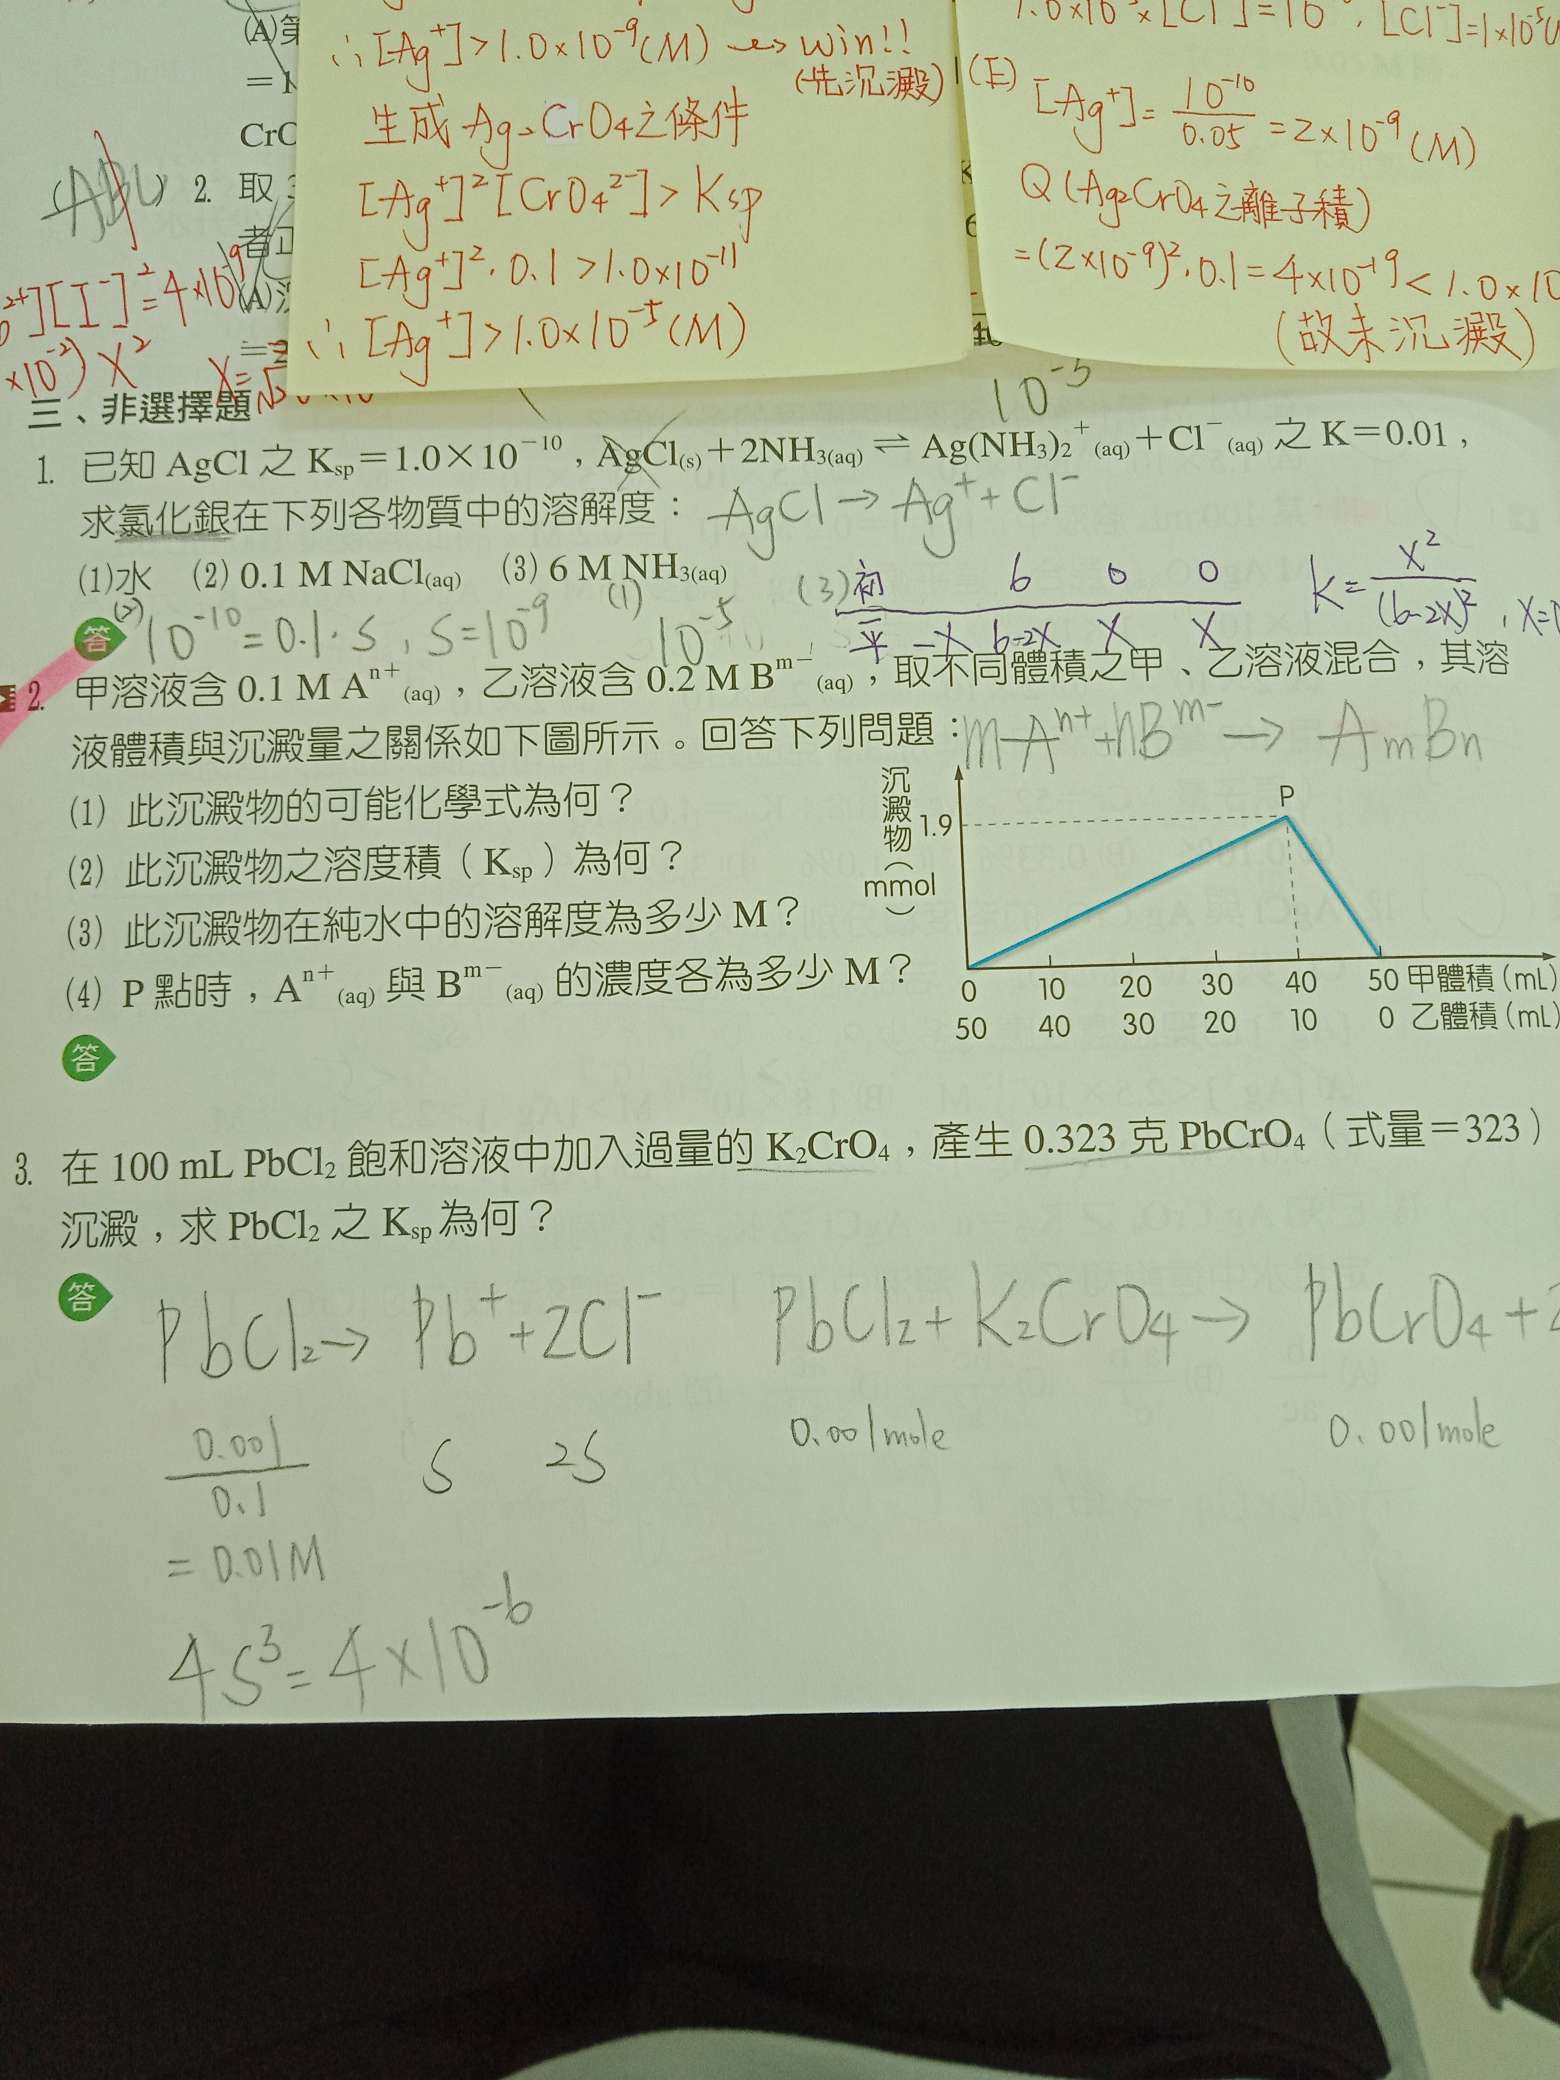 (A)第
=1
CrO
∴[Ag⁺]>1.0×10⁻⁹(M) ↝ win!!
(先沉澱)
生成Ag₂CrO₄之條件
[Ag⁺]²[CrO₄²⁻]>Ksp
[Ag⁺]²·0.1>1.0×10⁻¹¹
∴[Ag⁺]>1.0×10⁻⁵(M)
(E)
[Ag⁺]=10⁻¹⁰/0.05=2×10⁻⁹(M)
Q(Ag₂CrO₄之離子積)
=(2×10⁻⁹)²·0.1=4×10⁻¹⁹<1.0×10
(故未沉澱)
2. 取
者正
][I⁻]²=4×10⁻⁹
×10⁻²)X²
10⁻⁵
三、非選擇題
1. 已知 AgCl 之 Ksp=1.0×10⁻¹⁰,AgCl(s)+2NH₃(aq)⇌Ag(NH₃)₂⁺(aq)+Cl⁻(aq)之 K=0.01,
求氯化銀在下列各物質中的溶解度:
AgCl→Ag⁺+Cl⁻
(1)水 (2) 0.1 M NaCl(aq) (3) 6 M NH₃(aq)
(3) 初 6 0 0
平 -X 6-2X X X
K=X²/(6-2X)²
答 (2) 10⁻¹⁰=0.1·S,S=10⁻⁹ (1) 10⁻⁵
2. 甲溶液含 0.1 M Aⁿ⁺(aq),乙溶液含 0.2 M Bᵐ⁻(aq),取不同體積之甲、乙溶液混合,其溶
液體積與沉澱量之關係如下圖所示。回答下列問題:
mAⁿ⁺+nBᵐ⁻→AmBn
(1) 此沉澱物的可能化學式為何?
(2) 此沉澱物之溶度積(Ksp)為何?
(3) 此沉澱物在純水中的溶解度為多少 M?
(4) P 點時,Aⁿ⁺(aq)與 Bᵐ⁻(aq)的濃度各為多少 M?
沉澱物(mmol)
1.9
P
0 10 20 30 40 50 甲體積(mL)
50 40 30 20 10 0 乙體積(mL)
答
3. 在 100 mL PbCl₂ 飽和溶液中加入過量的 K₂CrO₄,產生 0.323 克 PbCrO₄(式量=323)
沉澱,求 PbCl₂ 之 Ksp 為何?
答
PbCl₂→Pb⁺+2Cl⁻
PbCl₂+K₂CrO₄→PbCrO₄+
0.001/0.1 S 2S
0.001mole 0.001mole
=0.01M
4S³=4×10⁻⁶